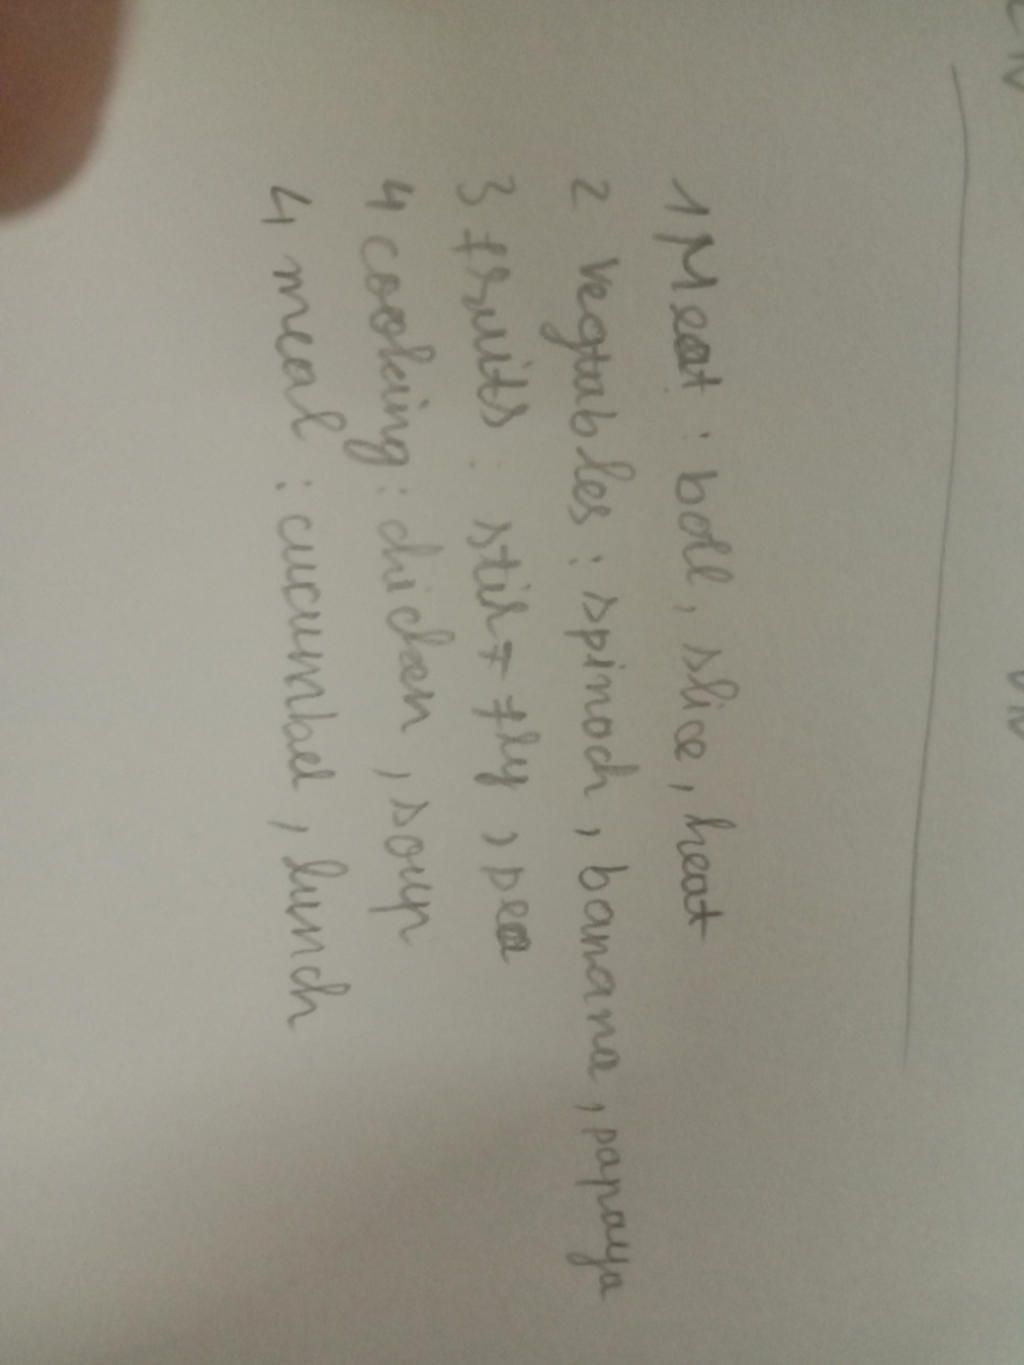 1 Meat : boll, slice, heat
2 vegtables : spinach, banana, papaya
3 fruits : stir-fly, pea
4 cooking : chicken, soup
4 meal : cucumbel, lunch